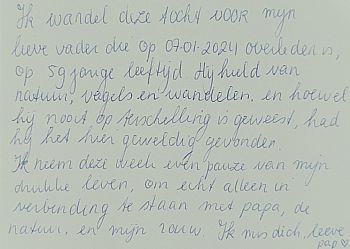 Ik wandel deze tocht voor mijn
lieve vader die op 07-01-2024 overleden is,
op 59 jarige leeftijd. Hij hield van
natuur, vogels en wandelen, en hoewel
hij nooit op terschelling is geweest, had
hij het hier geweldig gevonden.
Ik neem deze week even pauze van mijn
drukke leven, om echt alleen in
verbinding te staan met papa, de
natuur, en mijn rouw. Ik mis dich, lieve
pap ♡